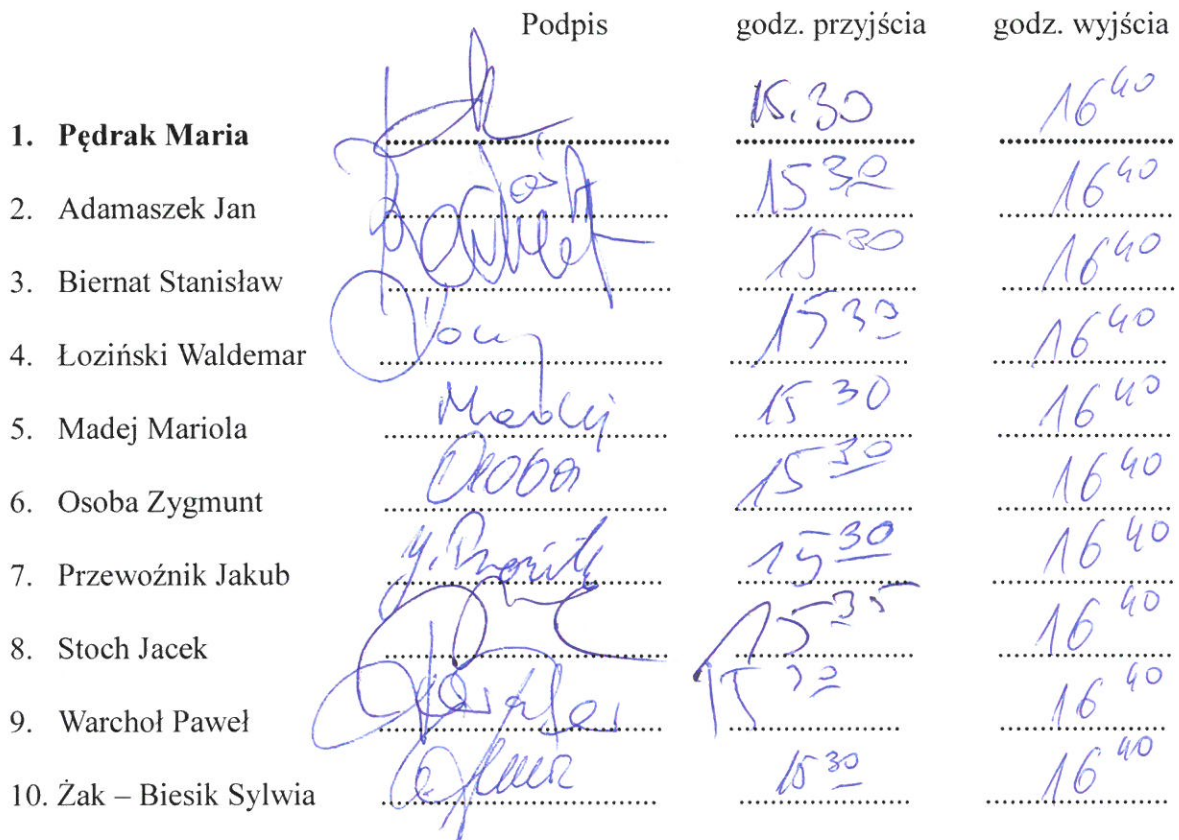 Podpis godz. przyjścia godz. wyjścia
1. Pędrak Maria 15.30 16 40
2. Adamaszek Jan 15 30 16 40
3. Biernat Stanisław 15 30 16 40
4. Łoziński Waldemar 15 30 16 40
5. Madej Mariola Madej 15 30 16 40
6. Osoba Zygmunt Osoba 15 30 16 40
7. Przewoźnik Jakub 15 30 16 40
8. Stoch Jacek 15 35 16 40
9. Warchoł Paweł 16 40
10. Żak – Biesik Sylwia 15 30 16 40